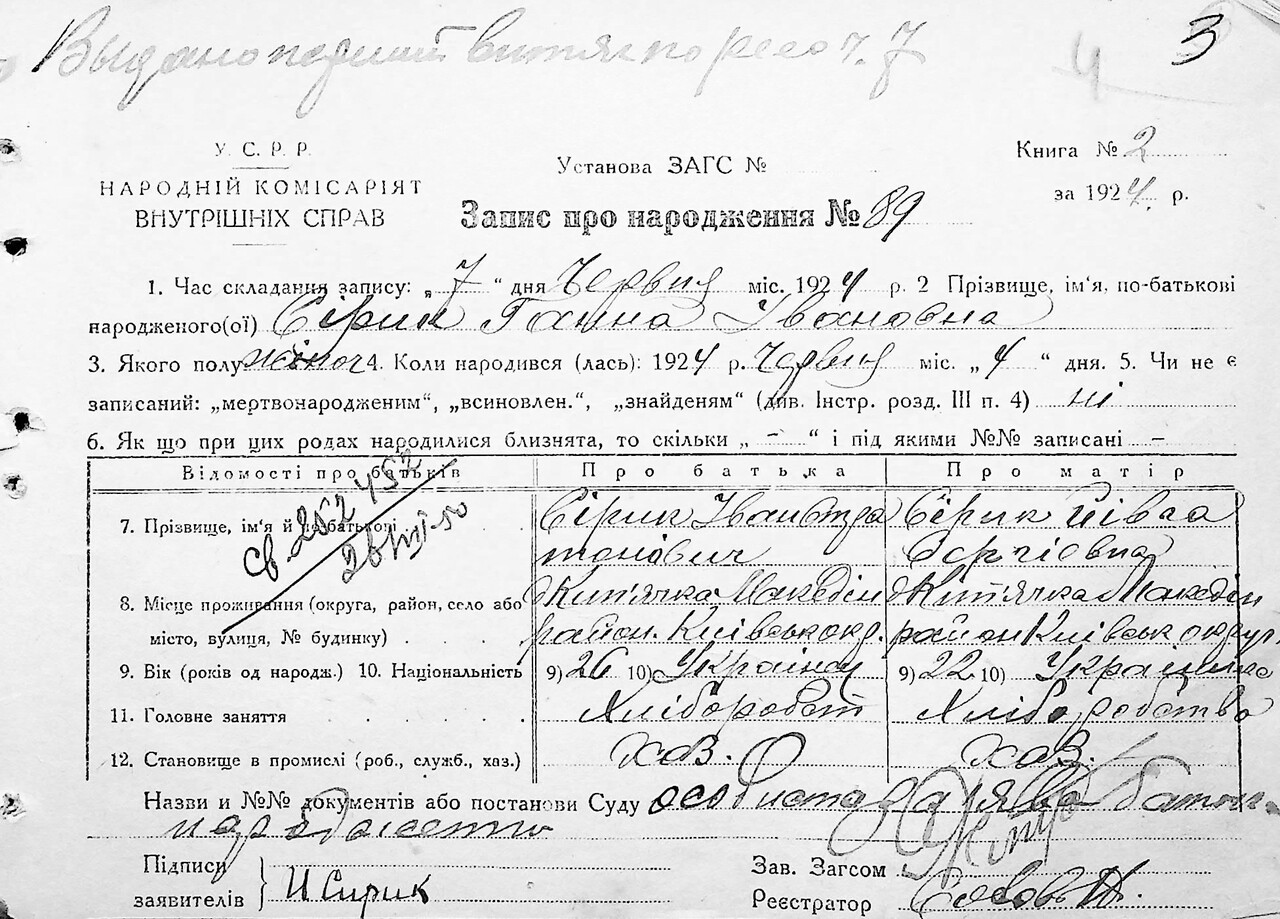 Выдано перший витяг по рееο ч. 7
3
4
У. С. Р. Р.
НАРОДНІЙ КОМІСАРІЯТ
ВНУТРІШНІХ СПРАВ
Установа ЗАГС №
Книга № 2
за 1924 р.
Запис про народження № 89
1. Час складання запису: „ 7 “ дня Червня міс. 1924 р. 2 Прізвище, ім'я, по-батькові
народженого(ої) Сірик Ганна Івановна
3. Якого полу жіноч 4. Коли народився (лась): 1924 р. Червня міс. „ 4 “ дня. 5. Чи не є
записаний: „мертвонародженим“, „всиновлен.“, „знайденям“ (див. Інстр. розд. III п. 4) ні
6. Як що при цих родах народилися близнята, то скільки „ - “ і під якими №№ записані -
Відомості про батьків Про батька Про матір
7. Прізвище, ім'я й по-батькові Сірик Іван Пра Сірик
тонович Сергіовна
8. Місце проживання (округа, район, село або Кип'ячка Македін Кип'ячка Македін
місто, вулиця, № будинку) район. Київськ окр. район Київськ округ
9. Вік (років од народж.) 10. Національність 9) 26 10) 9) 22 10) Українка
11. Головне заняття Хліборобст Хліборобство
12. Становище в промислі (роб., служб., хаз.) хаз. хаз.
Назви и №№ документів або постанови Суду особиста заява батька
Підписи
заявителів И Сирик
Зав. Загсом
Реєстратор